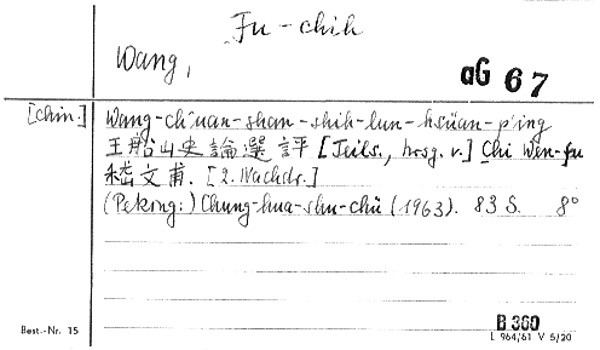 Fu-chih
Wang,
aG 67
[chin.] Wang-ch'uan-shan-shih-lun-hsüan-p'ing
王船山史論選評 [Teils., hrsg. v.] Chi Wen-fu
嵇文甫. [2. Nachdr.]
(Peking:) Chung-hua-shu-chü (1963). 83 S. 8°
B 360
Best.-Nr. 15
L 964/61 V 5/20